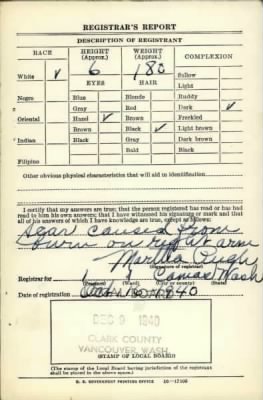 REGISTRAR'S REPORT
DESCRIPTION OF REGISTRANT
RACE HEIGHT (Approx.) WEIGHT (Approx.) COMPLEXION
White ✓ 6 180 Sallow
EYES HAIR Light
Negro Blue Blonde Ruddy
Gray Red Dark ✓
Oriental Hazel ✓ Brown Freckled
Brown Black ✓ Light brown
Indian Black Gray Dark brown
Bald Black
Filipino
Other obvious physical characteristics that will aid in identification
I certify that my answers are true; that the person registered has read or has had read to him his own answers; that I have witnessed his signature or mark and that all of his answers of which I have knowledge are true, except as follows:
Scar caused from
burn on right arm
Martha Pugh
(Signature of registrar)
Registrar for Camas Wash
(City or county) (State)
Date of registration 1940
DEC 9 1940
CLARK COUNTY
VANCOUVER, WASH.
(STAMP OF LOCAL BOARD)
(The stamp of the Local Board having jurisdiction of the registrant shall be placed in the above space.)
U. S. GOVERNMENT PRINTING OFFICE 16—17105